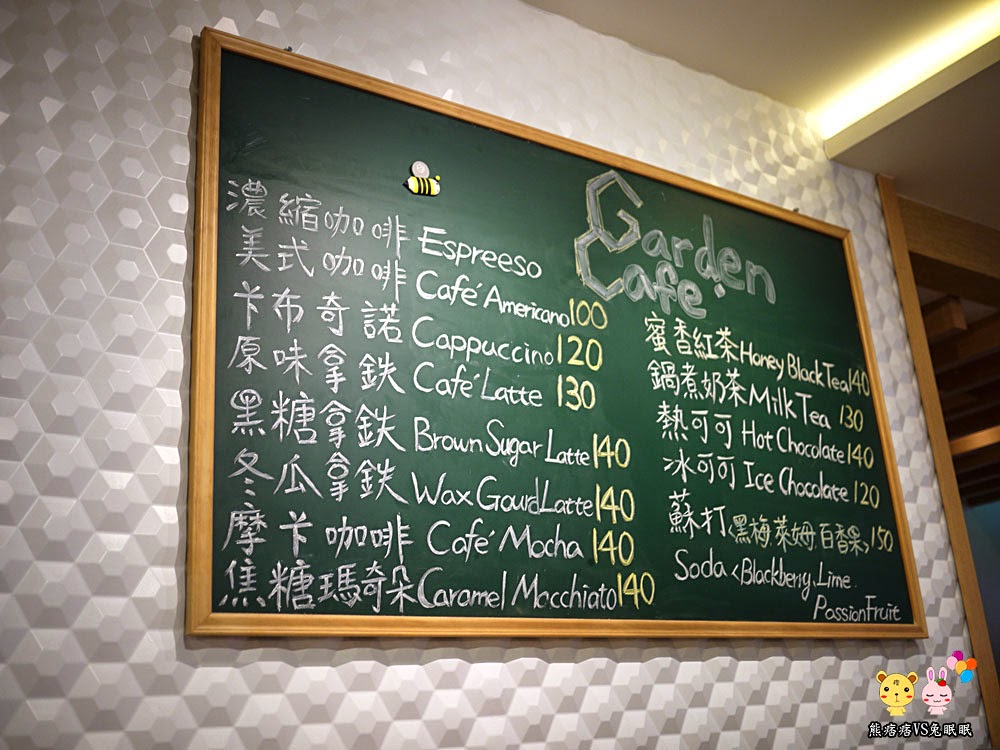 Garden
Cafe
濃縮咖啡 Espreeso
美式咖啡 Café Americano 100
卡布奇諾 Cappuccino 120
原味拿鉄 Café Latte 130
黑糖拿鉄 Brown Sugar Latte 140
冬瓜拿鉄 Wax Gourd Latte 140
摩卡咖啡 Café Mocha 140
焦糖瑪奇朵 Caramel Macchiato 140
蜜香紅茶 Honey Black Tea 140
鍋煮奶茶 Milk Tea 130
熱可可 Hot Chocolate 140
冰可可 Ice Chocolate 120
蘇打<黑梅.萊姆.百香果> 150
Soda <Blackberry, Lime.
PassionFruit
熊痞痞VS兔眠眠